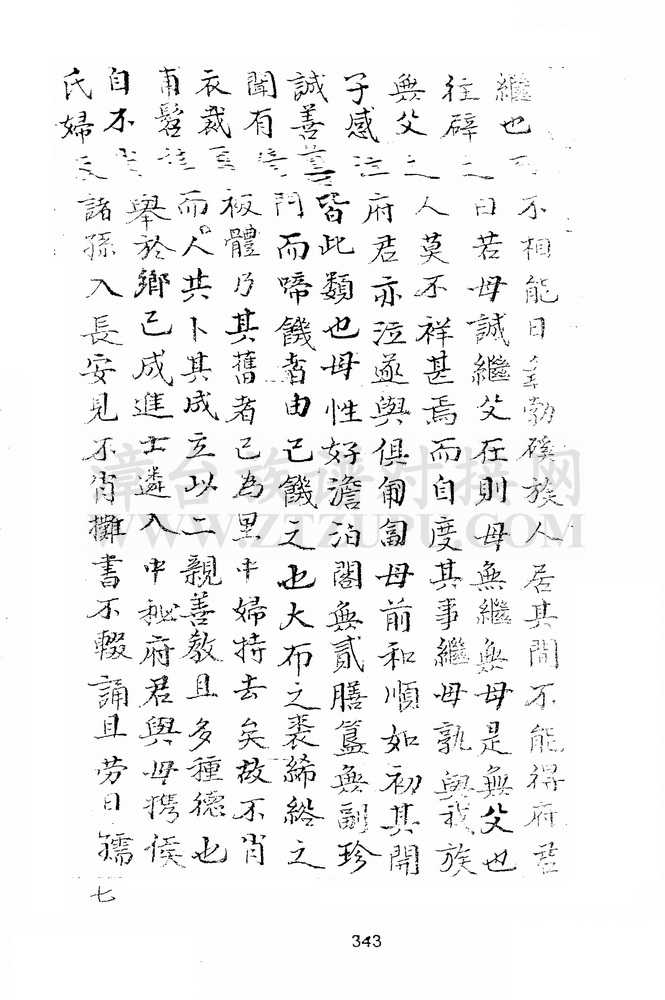 繼也不相能日勃磎族人居其間不能得府君
往辟之曰若母誠繼父在則母無繼無母是無父也
無父之人莫不祥甚焉而自度其事繼母孰與我族
子感泣府君亦泣遂與俱匍匐母前和順如初其開
誠善皆此類也母性好澹泊閣無貳膳簋無副珍
聞有門而啼饑者由己饑之也大布之裘絺綌之
衣裁板體乃其舊者已為里中婦持去矣故不肖
甫髫而人共卜其成立以二親善教且多種德也
自不舉於鄉已成進士遴入中秘府君與母携侯
氏婦諸孫入長安見不肖攤書不輟誦且勞曰孺
七
343
漳台族谱对接网
WWW.ZTZUPU.COM